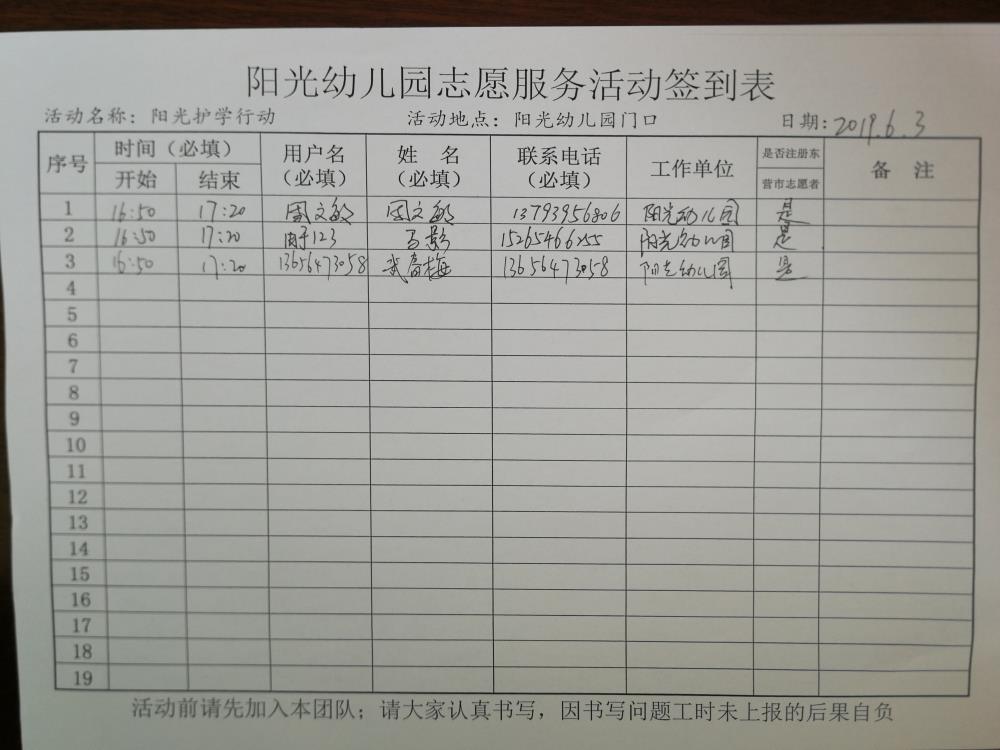 阳光幼儿园志愿服务活动签到表
活动名称：阳光护学行动 活动地点：阳光幼儿园门口 日期：2019.6.3
序号 时间（必填） 用户名（必填） 姓 名（必填） 联系电话（必填） 工作单位 是否注册东营市志愿者 备 注
开始 结束
1 16:50 17:20 周文敏 周文敏 13793956806 阳光幼儿园 是
2 16:50 17:20 123 马影 阳光幼儿园 是
3 16:50 17:20 13656473058 武春梅 13656473058 阳光幼儿园 是
4
5
6
7
8
9
10
11
12
13
14
15
16
17
18
19
活动前请先加入本团队；请大家认真书写，因书写问题工时未上报的后果自负